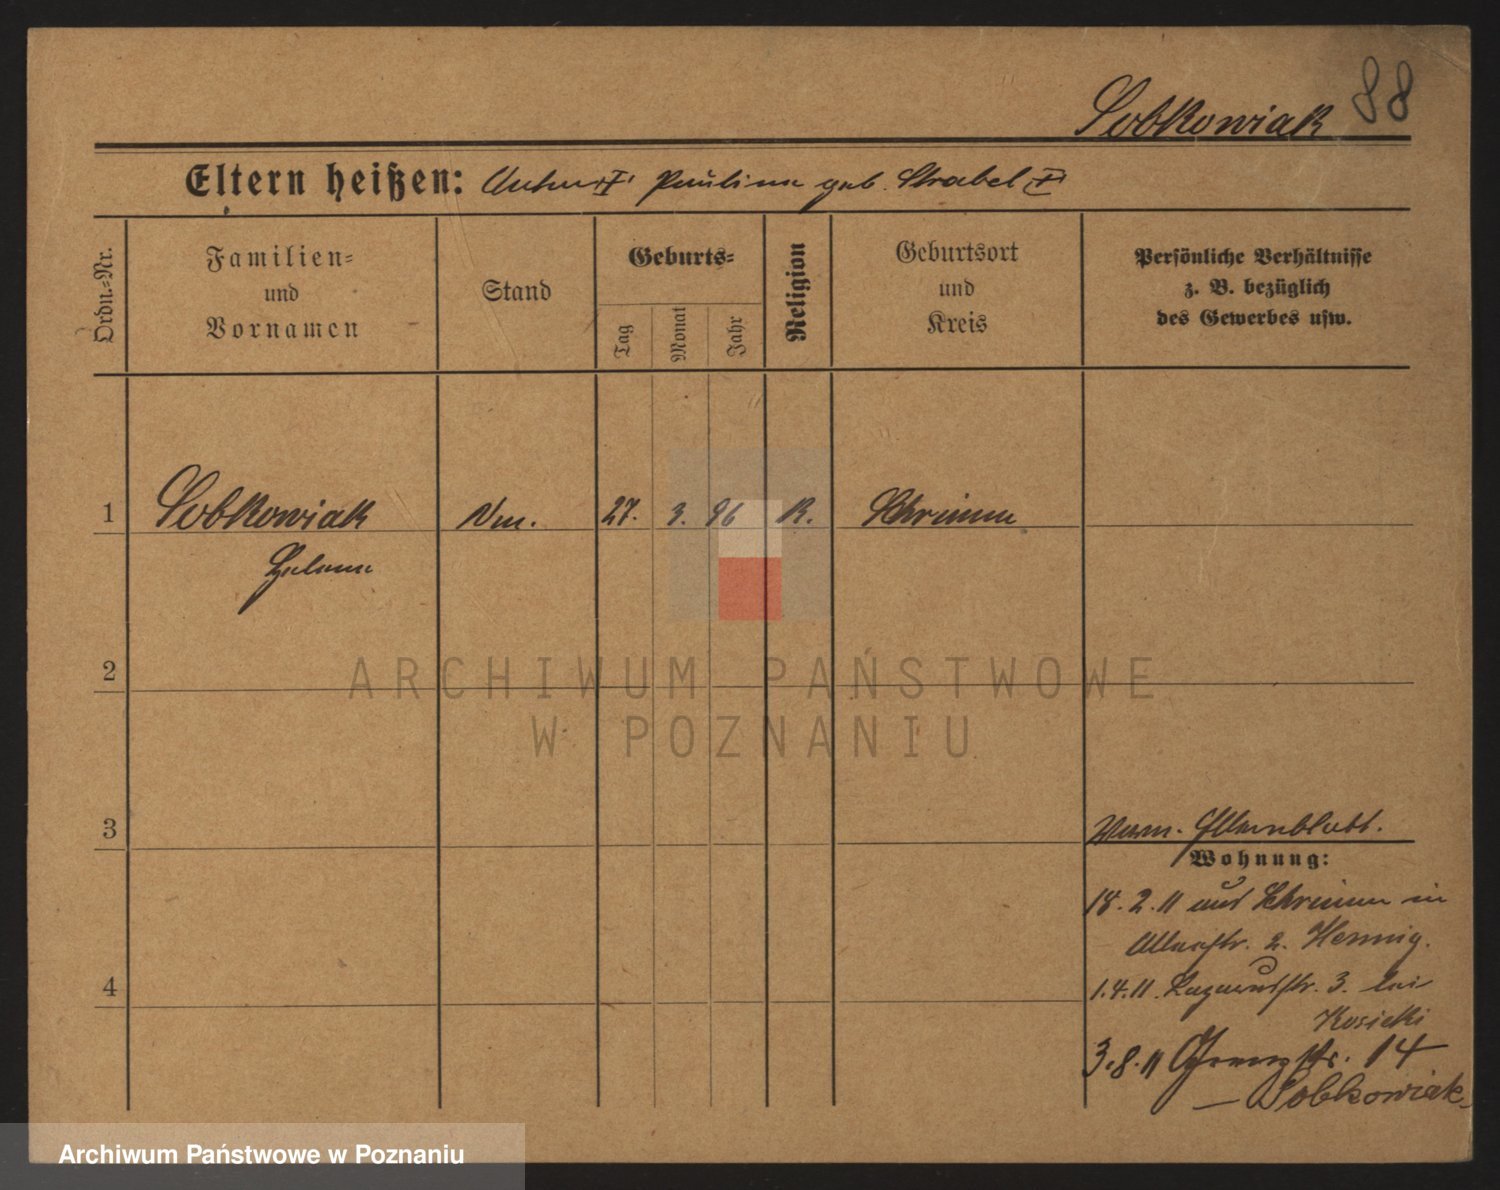 88
Sobkowiak
Eltern heißen: Anton † Paulina geb. Strabel †
Ordn.=Nr.
Familien=
und
Vornamen
Stand
Geburts=
Tag
Monat
Jahr
Religion
Geburtsort
und
Kreis
Persönliche Verhältnisse
z. B. bezüglich
des Gewerbes usw.
1 Sobkowiak 27. 3. 96 K. Schrimm
Helena
2
ARCHIWUM PAŃSTWOWE
W POZNANIU
3
Elternblatt.
Wohnung:
18. 2. 11 aus Schrimm in
2. Hennig.
4
1.4.11. 3. bei
Kosicki
3.8.11 Grenzstr. 14
— Sobkowiak.
Archiwum Państwowe w Poznaniu